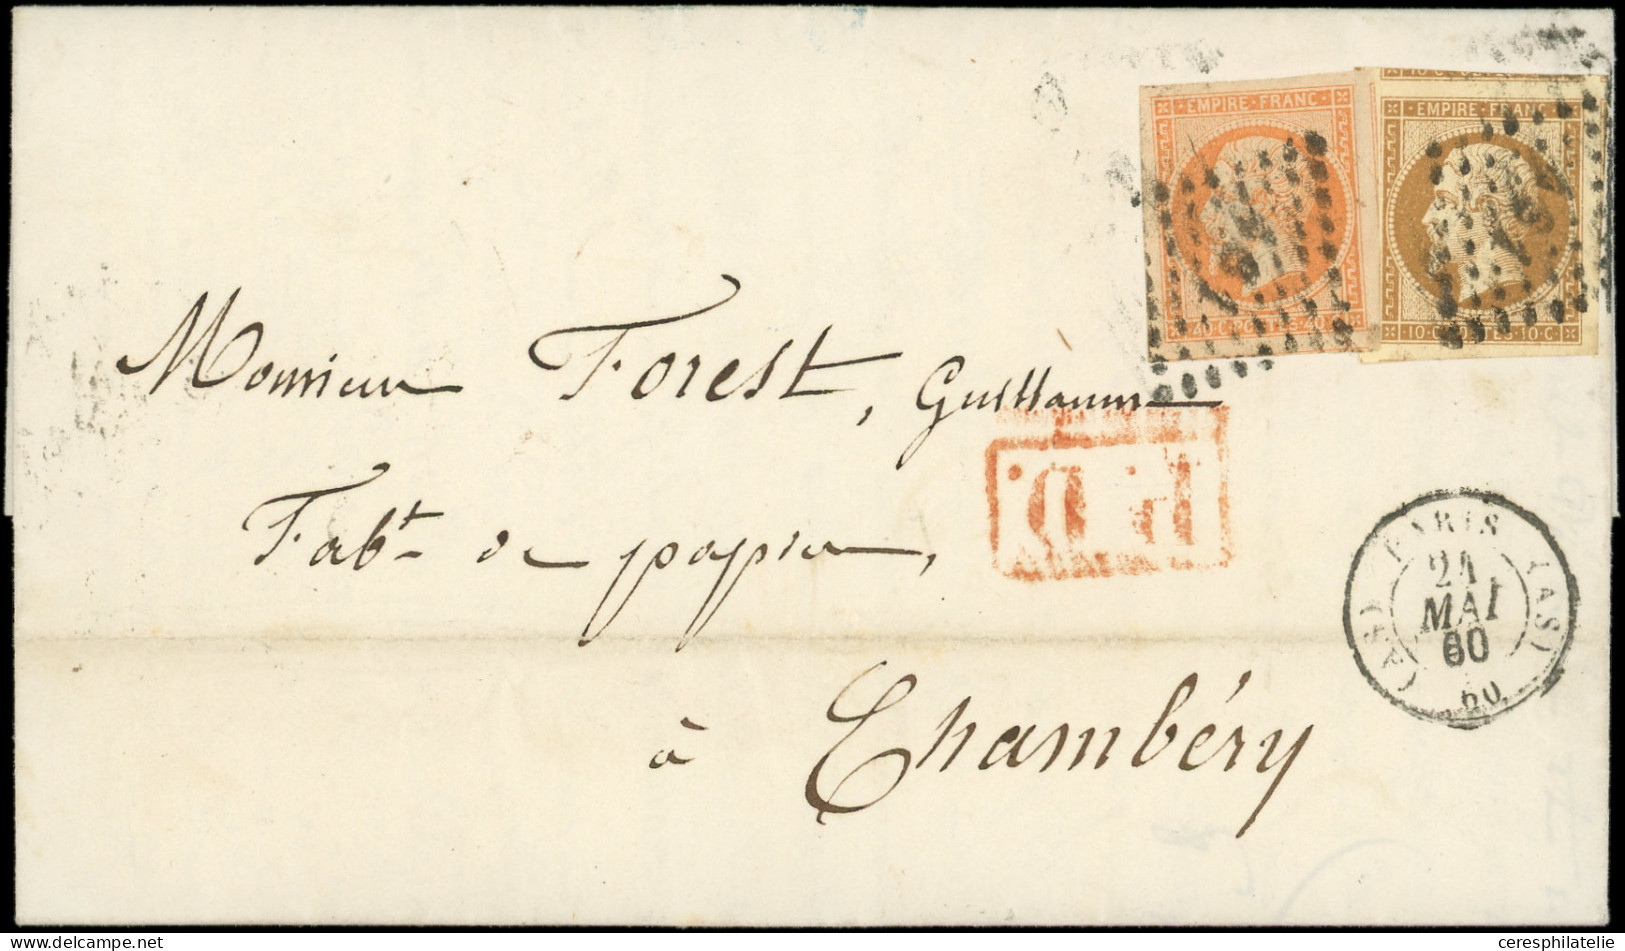 10·C·POSTES
·EMPIRE·FRANC·
·EMPIRE·FRANC·
·40·C·POSTES·40·C·
·10·C·POSTES·10·C·
Monsieur Forest, Guillaume
P.D.
Fabt de papier,
PARIS
(AS)
(AS)
21
MAI
60
60
à Chambéry
www.delcampe.net
ceresphilatelie